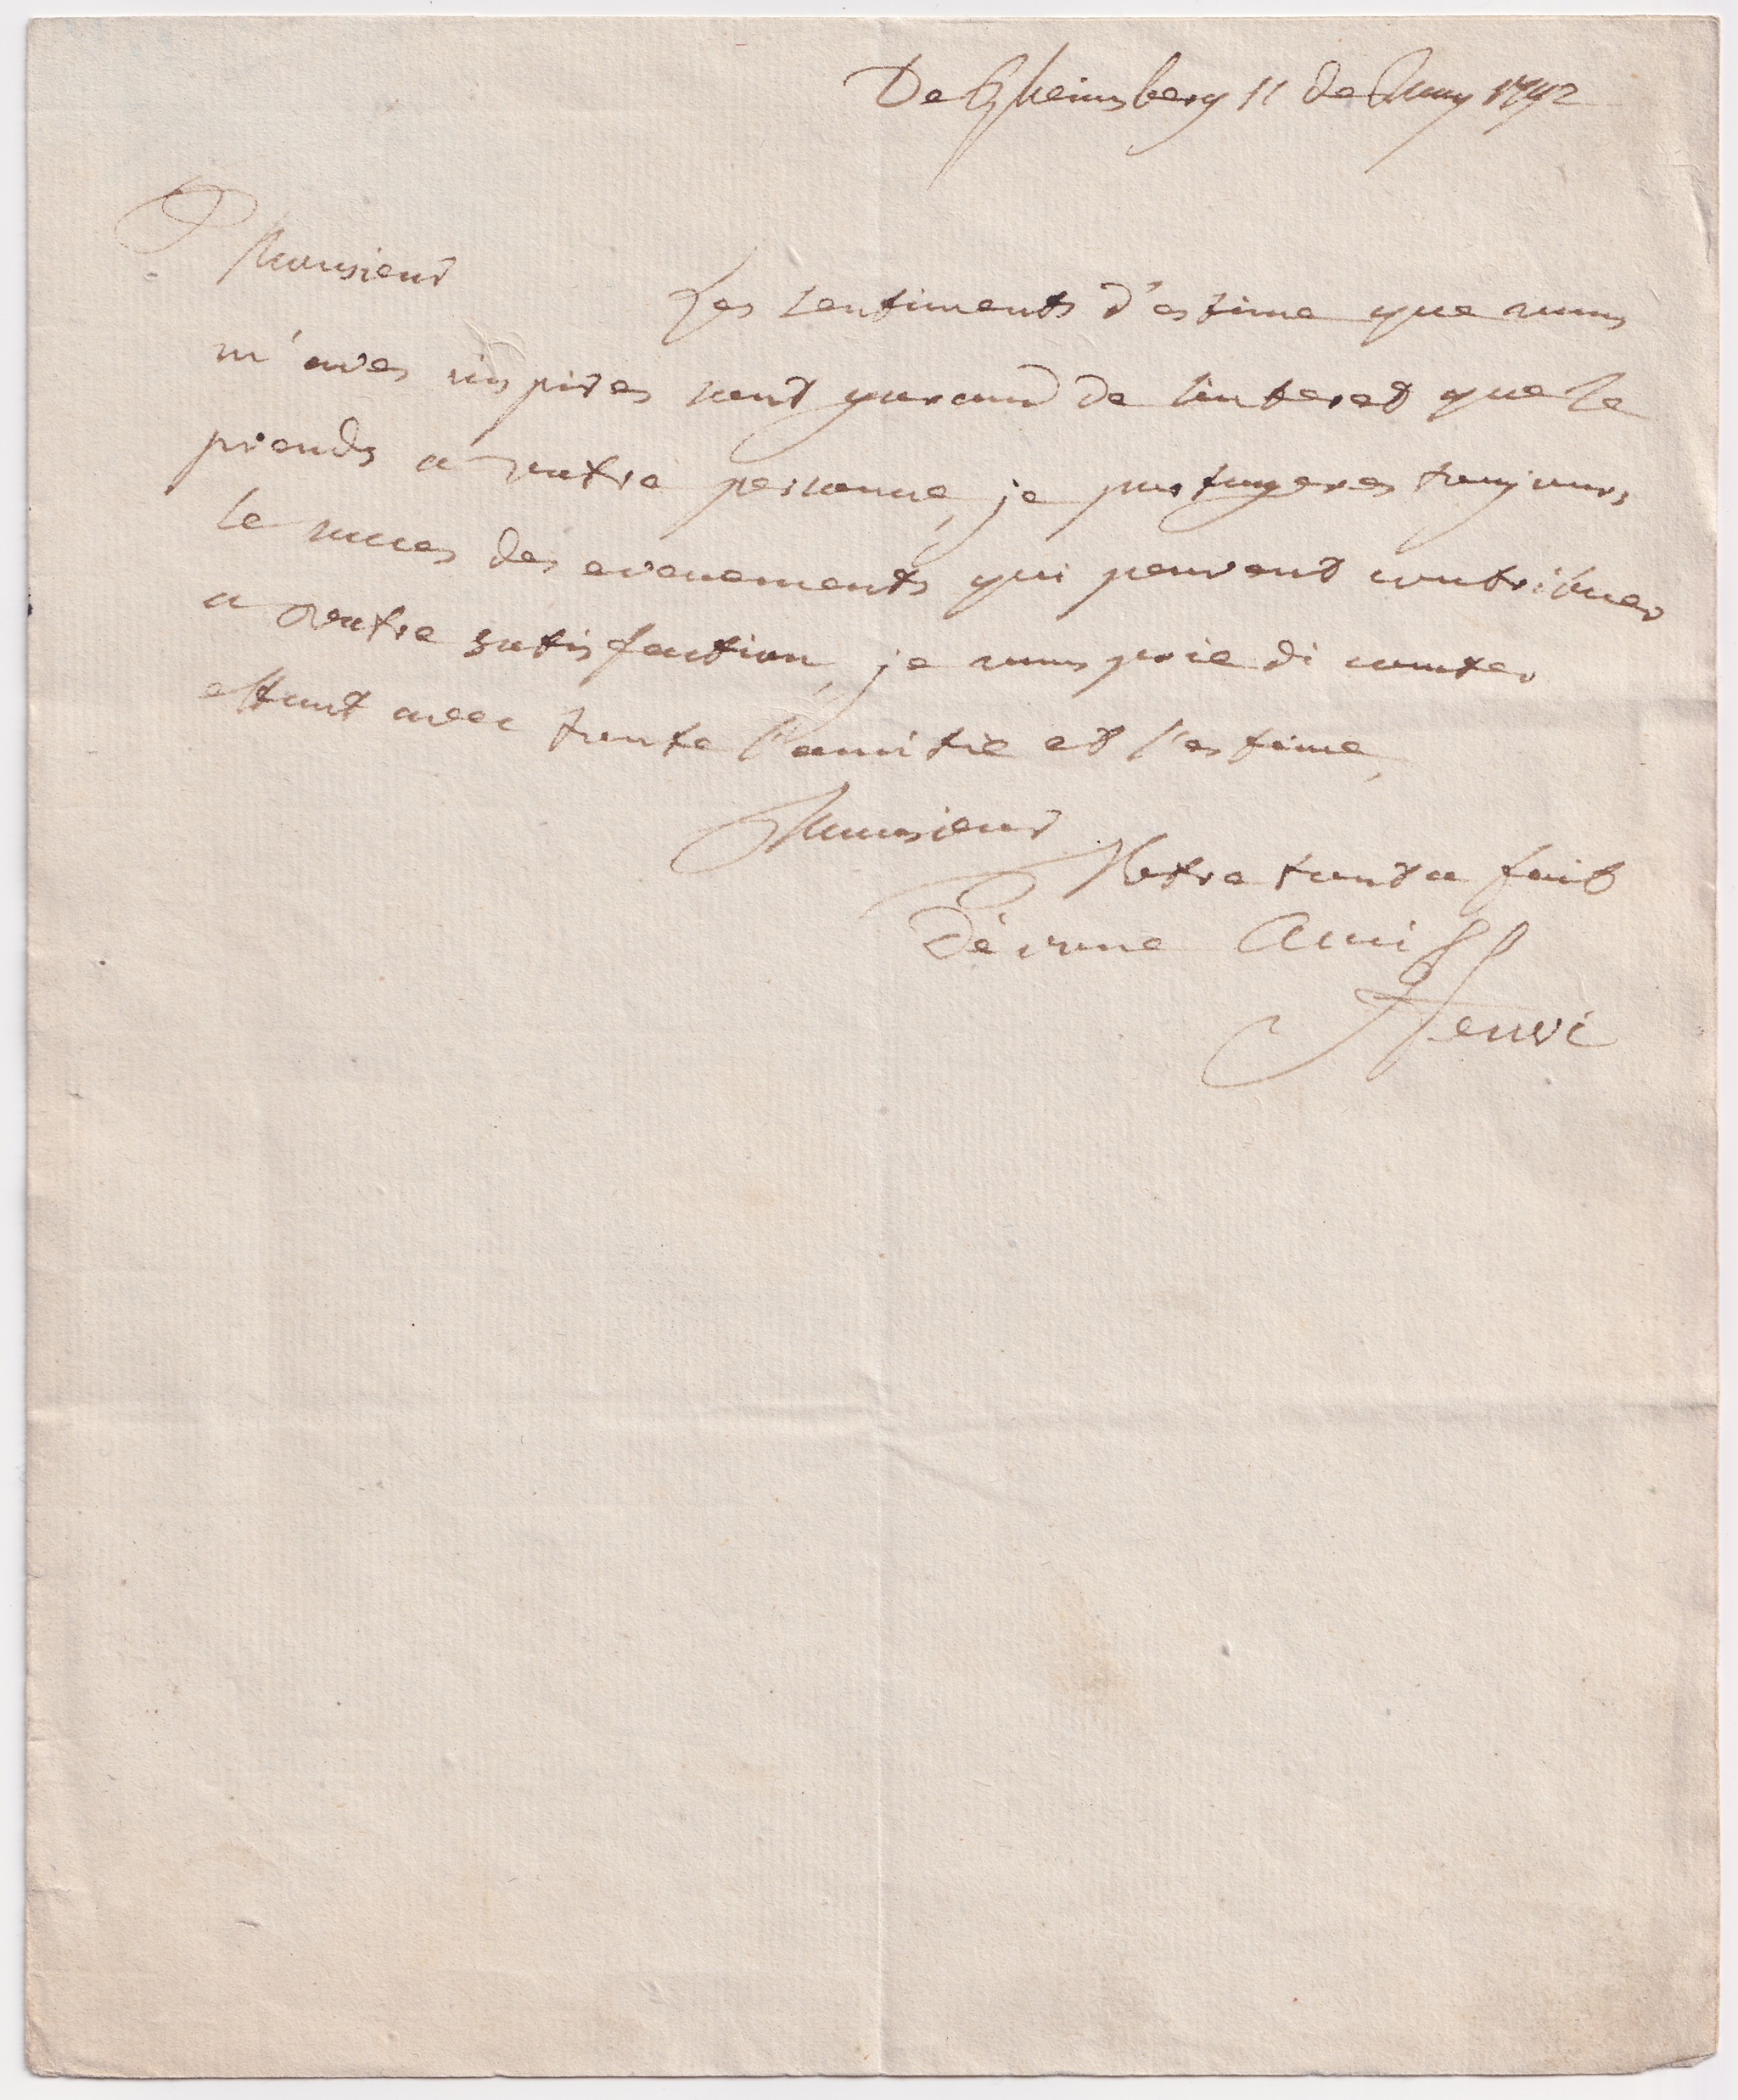 De Rheinsberg 11 de Juny 1792
Monsieur
Les sentiments d'estime que vous
m'aves inspires sont garand de l'interet que Je
prends a votre personne, je partageres toujours
le succes des evenements qui peuvent contribuer
a votre satisfaction, je vous prie di conter
ettant avec toute l'amitie et l'estime,
Monsieur
Votre tout a fait
dévoué Ami
Henri